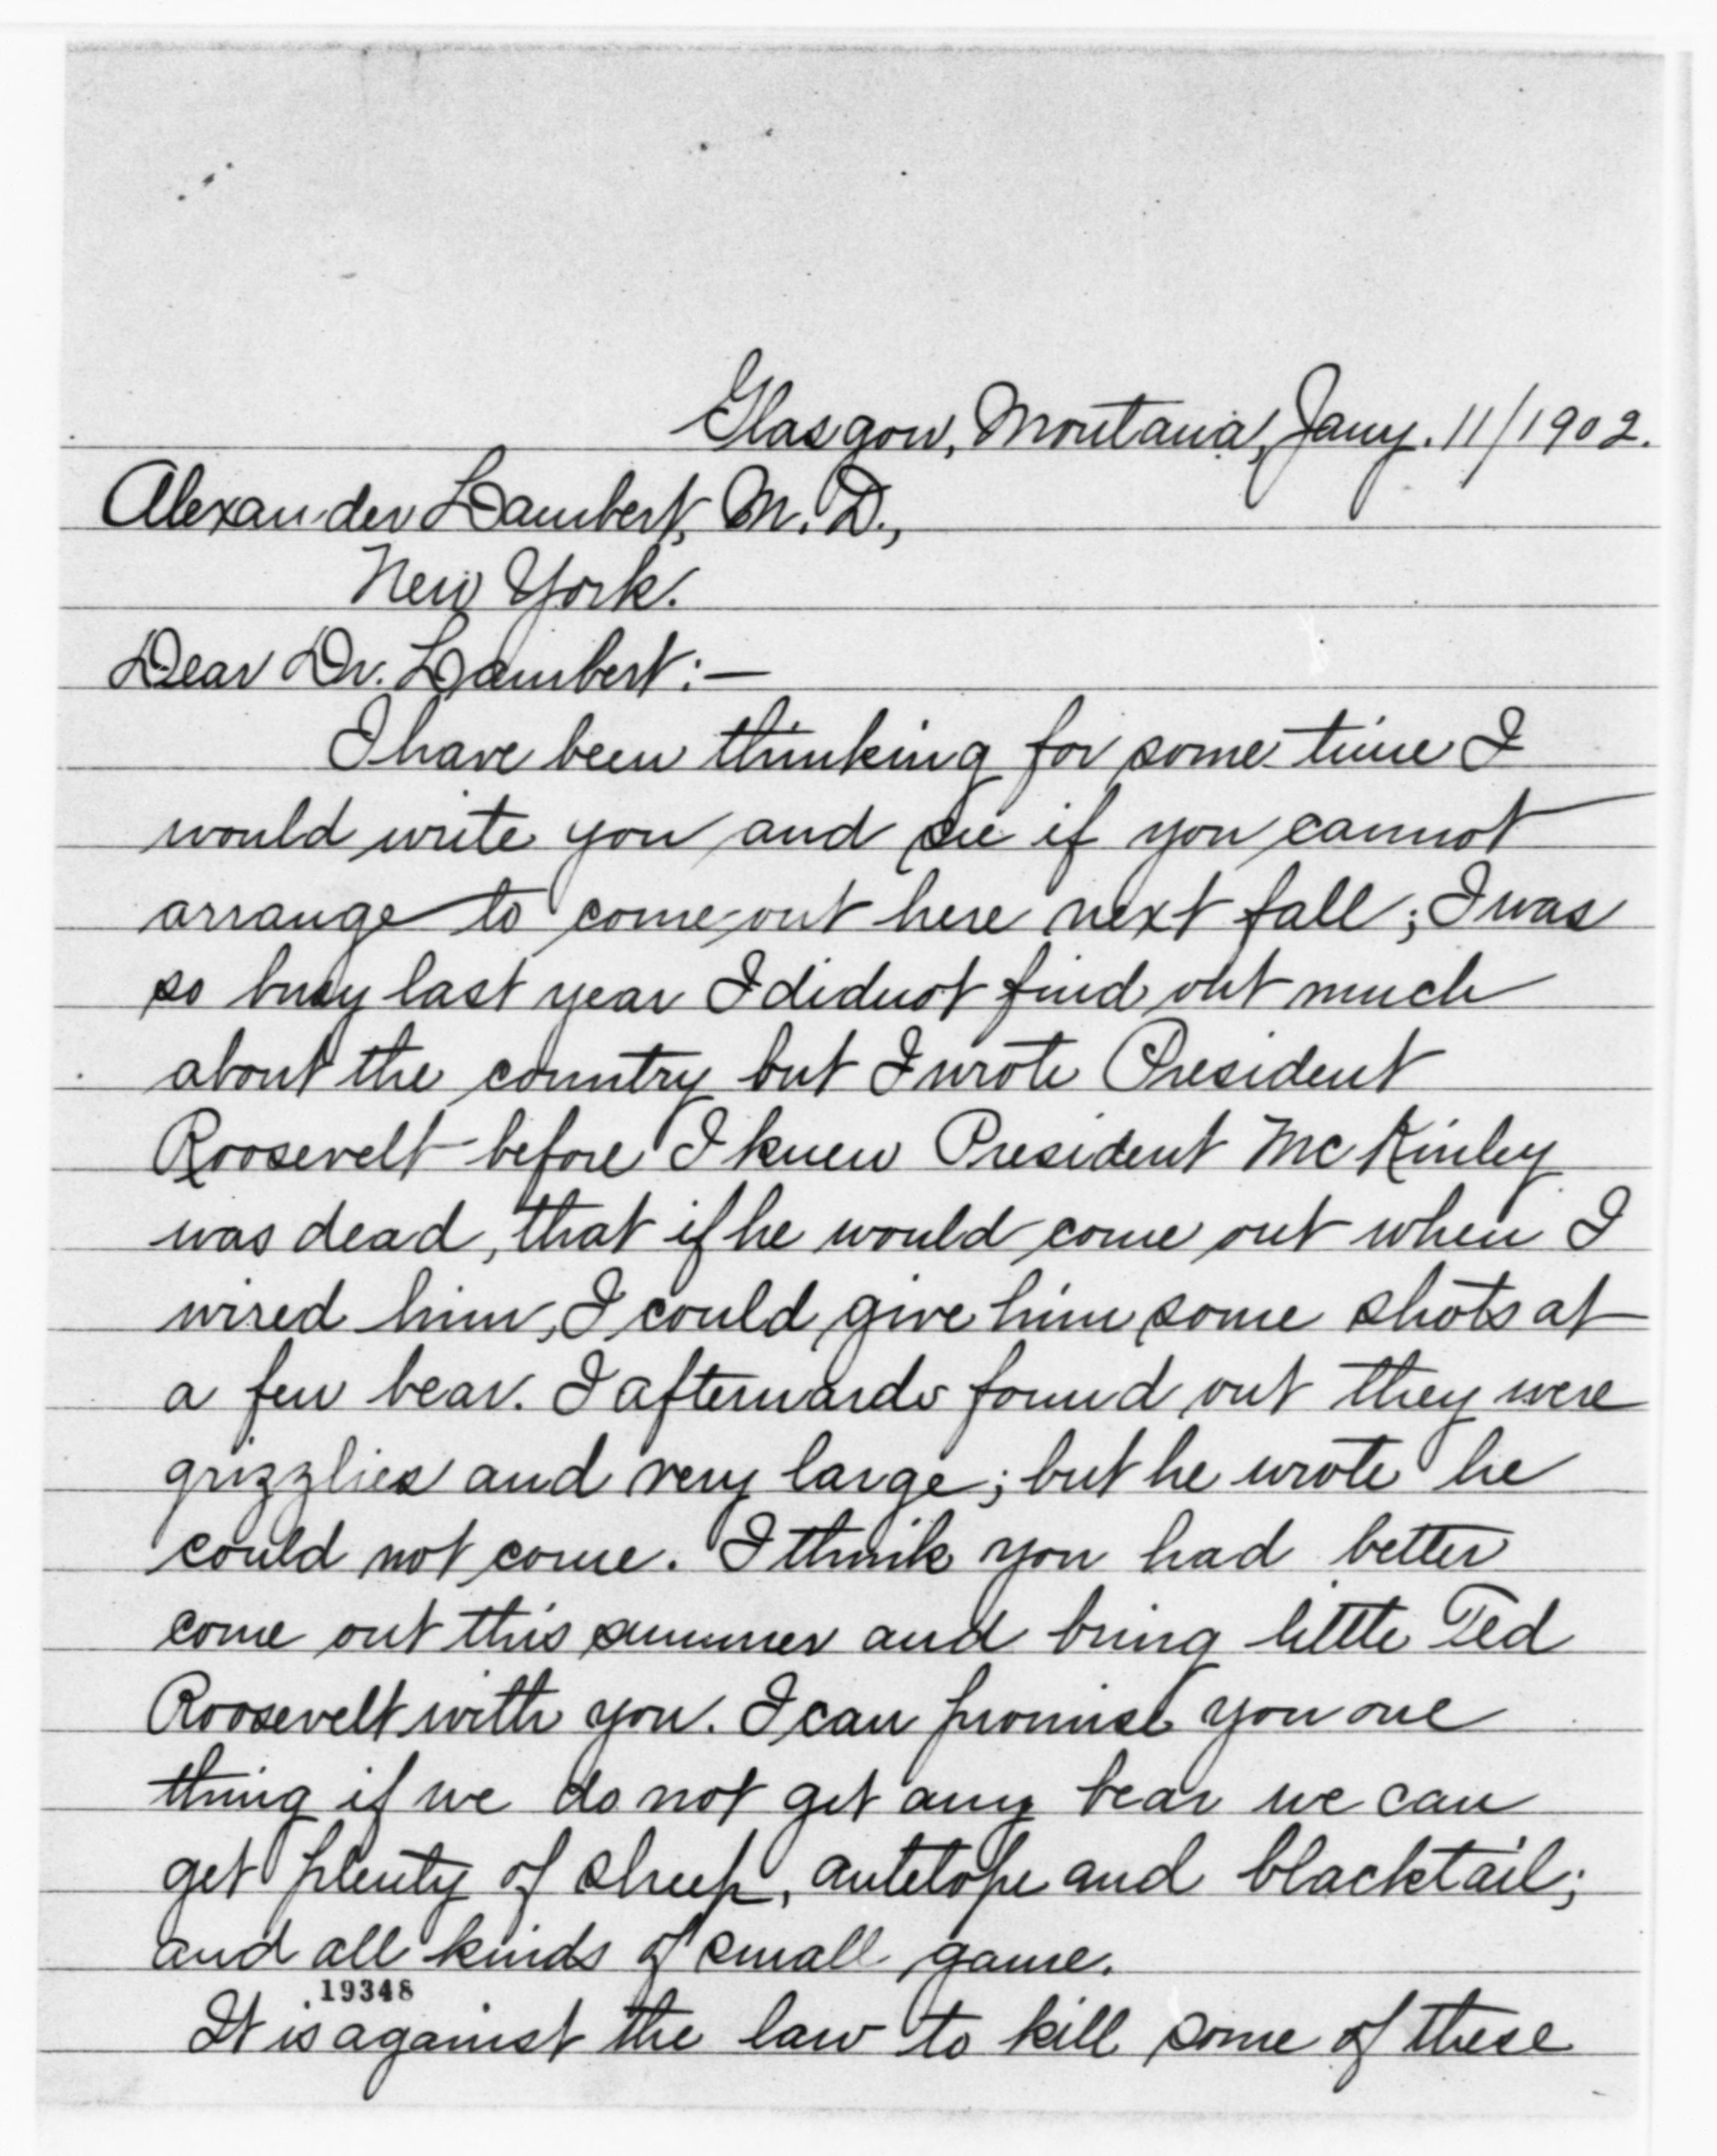 Glasgow, Montana, Jany. 11/1902.
Alexander Lambert, M.D.,
New York.
Dear Dr. Lambert:—
I have been thinking for some time I
would write you and see if you cannot
arrange to come out here next fall; I was
so busy last year I did not find out much
about the country but I wrote President
Roosevelt before I knew President McKinley
was dead, that if he would come out when I
wired him, I could give him some shots at
a few bear. I afterwards found out they were
grizzlies and very large; but he wrote he
could not come. I think you had better
come out this summer and bring little Ted
Roosevelt with you. I can promise you one
thing if we do not get any bear we can
get plenty of sheep, antelope and blacktail;
and all kinds of small game.
19348
It is against the law to kill some of these